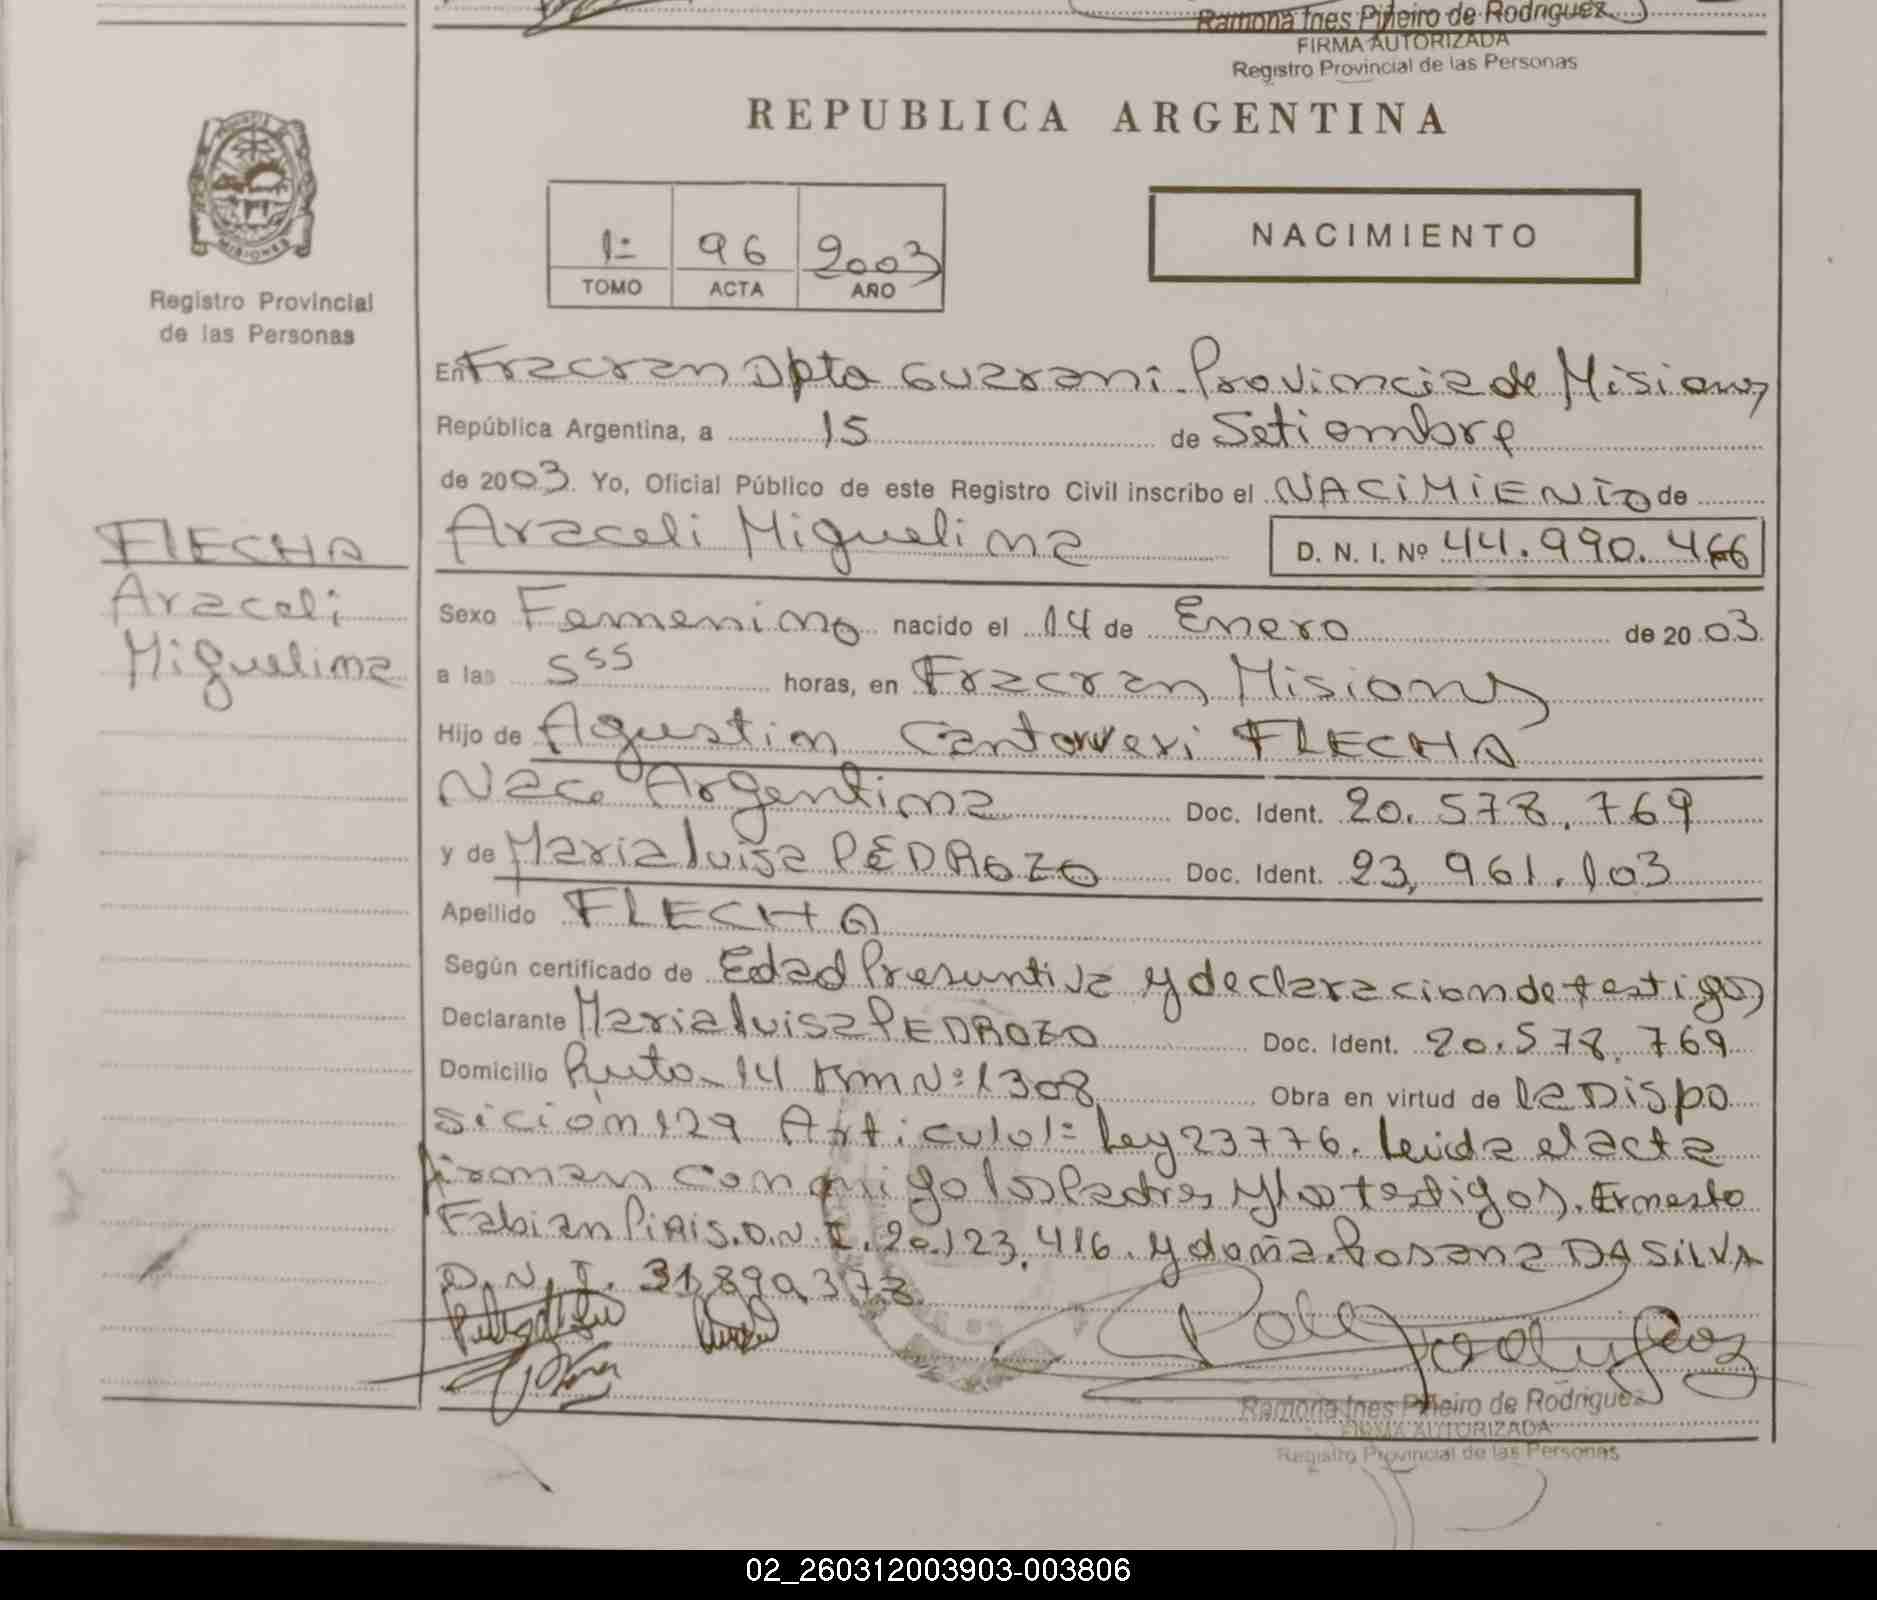 Ramona Ines Piñeiro de Rodriguez
FIRMA AUTORIZADA
Registro Provincial de las Personas
REPUBLICA ARGENTINA
MISIONES
Registro Provincial
de las Personas
1= 96 2003
TOMO ACTA AÑO
NACIMIENTO
En Fracran Dpto Guarani. Provincia de Misiones
República Argentina, a 15 de Setiembre
de 2003. Yo, Oficial Público de este Registro Civil inscribo el NACIMIENTO de
Araceli Miguelina D. N. I. Nº 44.990.466
FLECHA
Araceli
Miguelina
Sexo Femenino nacido el 14 de Enero de 2003
a las 5 55 horas, en Fracran Misiones
Hijo de Agustin Cantorveri FLECHA
Nac. Argentina Doc. Ident. 20.578.769
y de Maria luisa PEDROZO Doc. Ident. 23,961.103
Apellido FLECHA
Según certificado de Edad Presuntiva y declaracion de testigos
Declarante Maria luisa PEDROZO Doc. Ident. 20.578.769
Domicilio Ruta 14 Km Nº 1308 Obra en virtud de la Dispo
sición 129 Articulo 1= Ley 23776. leida el acta
firman conmigo los Padres y los testigos. Ernesto
Fabian PIRIS. D.N.I. 20.123.416. y doña. Rosana DA SILVA
D.N.I. 31.890.378
Ramona Ines Piñeiro de Rodriguez
FIRMA AUTORIZADA
Registro Provincial de las Personas
02_260312003903-003806